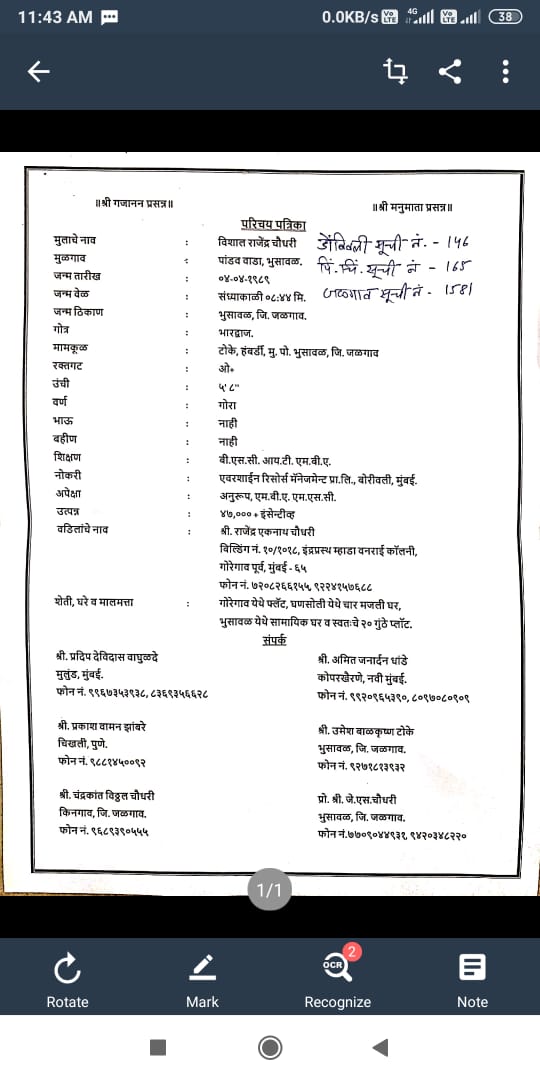 11:43 AM
0.0KB/s 4G 38
॥श्री गजानन प्रसन्न॥ ॥श्री मनुमाता प्रसन्न॥
परिचय पत्रिका
मुलाचे नाव : विशाल राजेंद्र चौधरी डोंबिवली सूची नं. - १४६
मुळगाव : पांडव वाडा, भुसावळ. पिं. चिं. सूची नं - 165
जन्म तारीख : ०४-०४-१९८९
जन्म वेळ : संध्याकाळी ०८:४४ मि. जळगाव सूची नं. - 1581
जन्म ठिकाण : भुसावळ, जि. जळगाव.
गोत्र : भारद्वाज.
मामकूळ : टोके, हंबर्डी, मु. पो. भुसावळ, जि. जळगाव
रक्तगट : ओ+
उंची : ५' ८"
वर्ण : गोरा
भाऊ : नाही
बहीण : नाही
शिक्षण : बी.एस.सी. आय.टी. एम.बी.ए.
नोकरी : एवरशाईन रिसोर्स मॅनेजमेन्ट प्रा.लि., बोरीवली, मुंबई.
अपेक्षा : अनुरूप, एम.बी.ए. एम.एस.सी.
उत्पन्न : ४७,००० + इंसेन्टीव्ह
वडिलांचे नाव : श्री. राजेंद्र एकनाथ चौधरी
बिल्डिंग नं. १०/१०१८, इंद्रप्रस्थ म्हाडा वनराई कॉलनी,
गोरेगाव पूर्व, मुंबई - ६५
फोन नं. ७२०८२६६१५५, ९२२४१५७६८८
शेती, घरे व मालमत्ता : गोरेगाव येथे फ्लॅट, घणसोली येथे चार मजली घर,
भुसावळ येथे सामायिक घर व स्वतःचे २० गुंठे प्लॉट.
संपर्क
श्री. प्रदिप देविदास वाघुळदे श्री. अमित जनार्दन धांडे
मुलुंड, मुंबई. कोपरखैरणे, नवी मुंबई.
फोन नं. ९९६७३५३९३८, ८३६९३५६६२८ फोन नं. ९९२०९६५३९०, ८०९७०८०९०९
श्री. प्रकाश वामन झांबरे श्री. उमेश बाळकृष्ण टोके
चिखली, पुणे. भुसावळ, जि. जळगाव.
फोन नं. ९८८१४५००९२ फोन नं. ९२७१८१३९३२
श्री. चंद्रकांत विठ्ठल चौधरी प्रो. श्री. जे.एस.चौधरी
किनगाव, जि. जळगाव. भुसावळ, जि. जळगाव.
फोन नं. ९६८९३९०५५५ फोन नं.७७०९०४४९३१, ९४२०३४८२२०
1/1
OCR 2
Rotate Mark Recognize Note